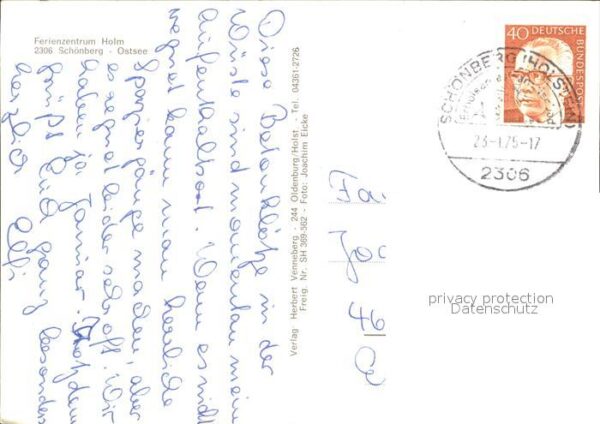 Ferienzentrum Holm
2306 Schönberg - Ostsee
Diese Betonklötze in der
Wüste sind momentan mein
Aufenthaltsort. Wenn es nicht
regnet kann man herrliche
Spaziergänge machen, aber
es regnet leider sehr oft. Wir
haben ja Januar. Trotzdem
grüßt Euch ganz besonders
herzlich Elfi
Verlag Herbert Venneberg - 244 Oldenburg/Holst - Tel. 04361-2726
Freig. Nr. SH 369-362 - Foto: Joachim Eicke
40 DEUTSCHE
BUNDESPOST
SCHÖNBERG (HOLSTEIN)
23-1.75-17
2306
Fa
46
privacy protection
Datenschutz